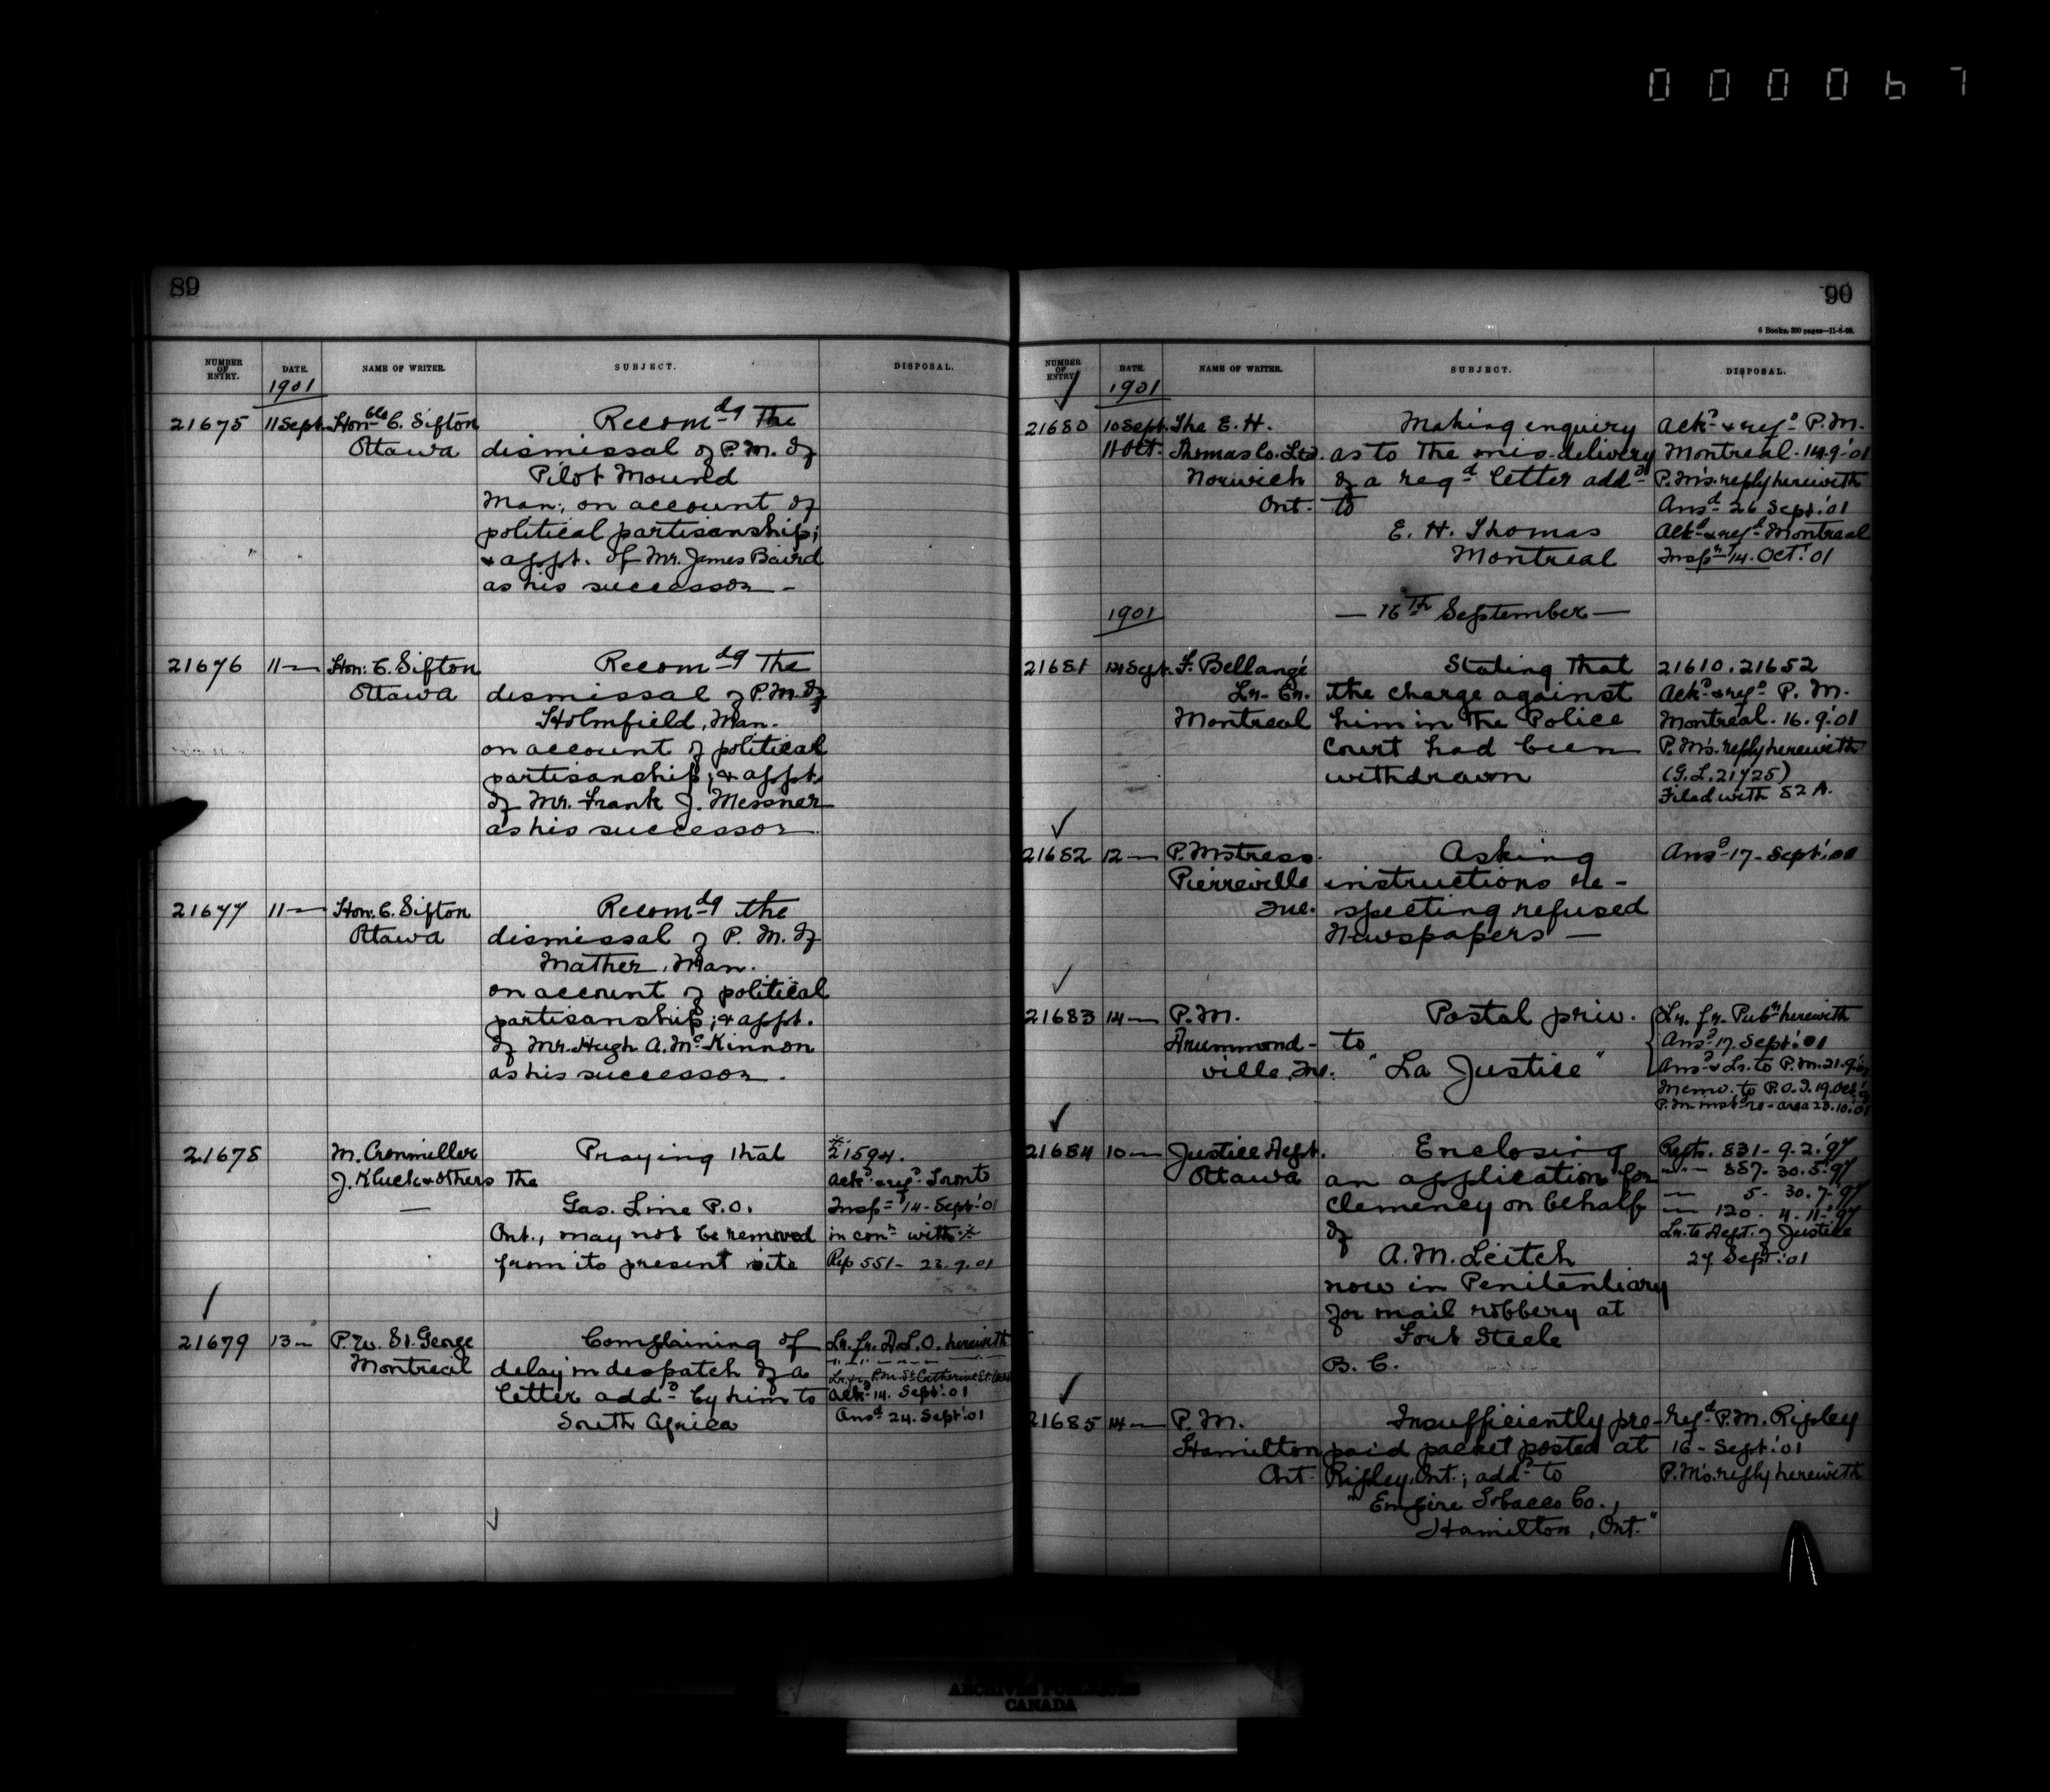 000067
89
NUMBER OF ENTRY. DATE. NAME OF WRITER. SUBJECT. DISPOSAL.
1901
21675 11 Sept. Honble C. Sifton Recomdg the
Ottawa dismissal of P.M. of
Pilot Mound
Man., on account of
political partisanship;
& appt. of Mr. James Baird
as his successor -
21676 11 — Hon: C. Sifton Recomdg The
Ottawa dismissal of P.M. of
Holmfield, Man.
on account of political
partisanship; & appt.
of Mr. Frank J. Messner
as his successor
21677 11 — Hon. C. Sifton Recomdg the
Ottawa dismissal of P. M. of
Mather, Man.
on account of political
partisanship; & appt.
of Mr. Hugh A. McKinnon
as his successor.
21678 M. Cronmiller Praying that 21594.
J. Kluck & others the Ackd & refd Toronto
— Gas Line P.O. Inspr 14 - Sept: 01
Ont., may not be removed in conn with
from its present site Rep 551 - 23.9.01
21679 13 — P. W. St. George Complaining of Lr. fr. D.L.O. herewith
Montreal delay in despatch of a Lr. fr. P.M. St Catherine St.
letter addd by him to Ackd 14. Sept: 01
South Africa Ansd 24. Sept: 01
90
6 Books, 300 pages—11-8-98.
NUMBER OF ENTRY. DATE. NAME OF WRITER. SUBJECT. DISPOSAL.
1901
21680 10 Sept. The E. H. Making enquiry Ackd & refd P.M.
11 Oct. Thomas Co. Ltd. as to the mis-delivery Montreal - 14.9.01
Norwich of a regd letter addd P.M's reply herewith
Ont. to Ansd 26 Sept: 01
E. H. Thomas Ackd & refd Montreal
Montreal Inspr 14. Oct: 01
1901 — 16th September —
21681 14 Sept. F. Bellangé Stating that 21610. 21652
Lr. Cr. the charge against Ackd & refd P. M.
Montreal him in the Police Montreal. 16.9.01
Court had been P.M's. reply herewith
withdrawn (G.L. 21725)
Filed with 82 A.
21682 12 — P. Mstress. Asking Ansd 17 - Sept: 01
Pierreville instructions re-
Que. specting refused
Newspapers —
21683 14 — P.M. Postal priv. Lr. fr. Pubr herewith
Drummond- to Ansd 17. Sept: 01
ville, Que. "La Justice" Ansd & Lr. to P.M. 21.9.01
Memo. to P.O.I. 19. Oct.
P.M. re - area 23.10.01
21684 10 — Justice Dept. Enclosing Repts. 831 - 9.2.97
Ottawa an application for — 887 - 30.5.97
clemency on behalf — 5 - 30.7.97
of — 120 - 4.11.97
A. M. Leitch Lr. to Dept. of Justice
now in Penitentiary 27 Sept: 01
for mail robbery at
Fort Steele
B. C.
21685 14 — P.M. Insufficiently pre- Refd P.M. Ripley
Hamilton paid packet posted at 16 - Sept: 01
Ont. Ripley, Ont.; addd to P.M's. reply herewith
"Empire Tobacco Co.,
Hamilton, Ont."
ARCHIVES PUBLIQUES
CANADA